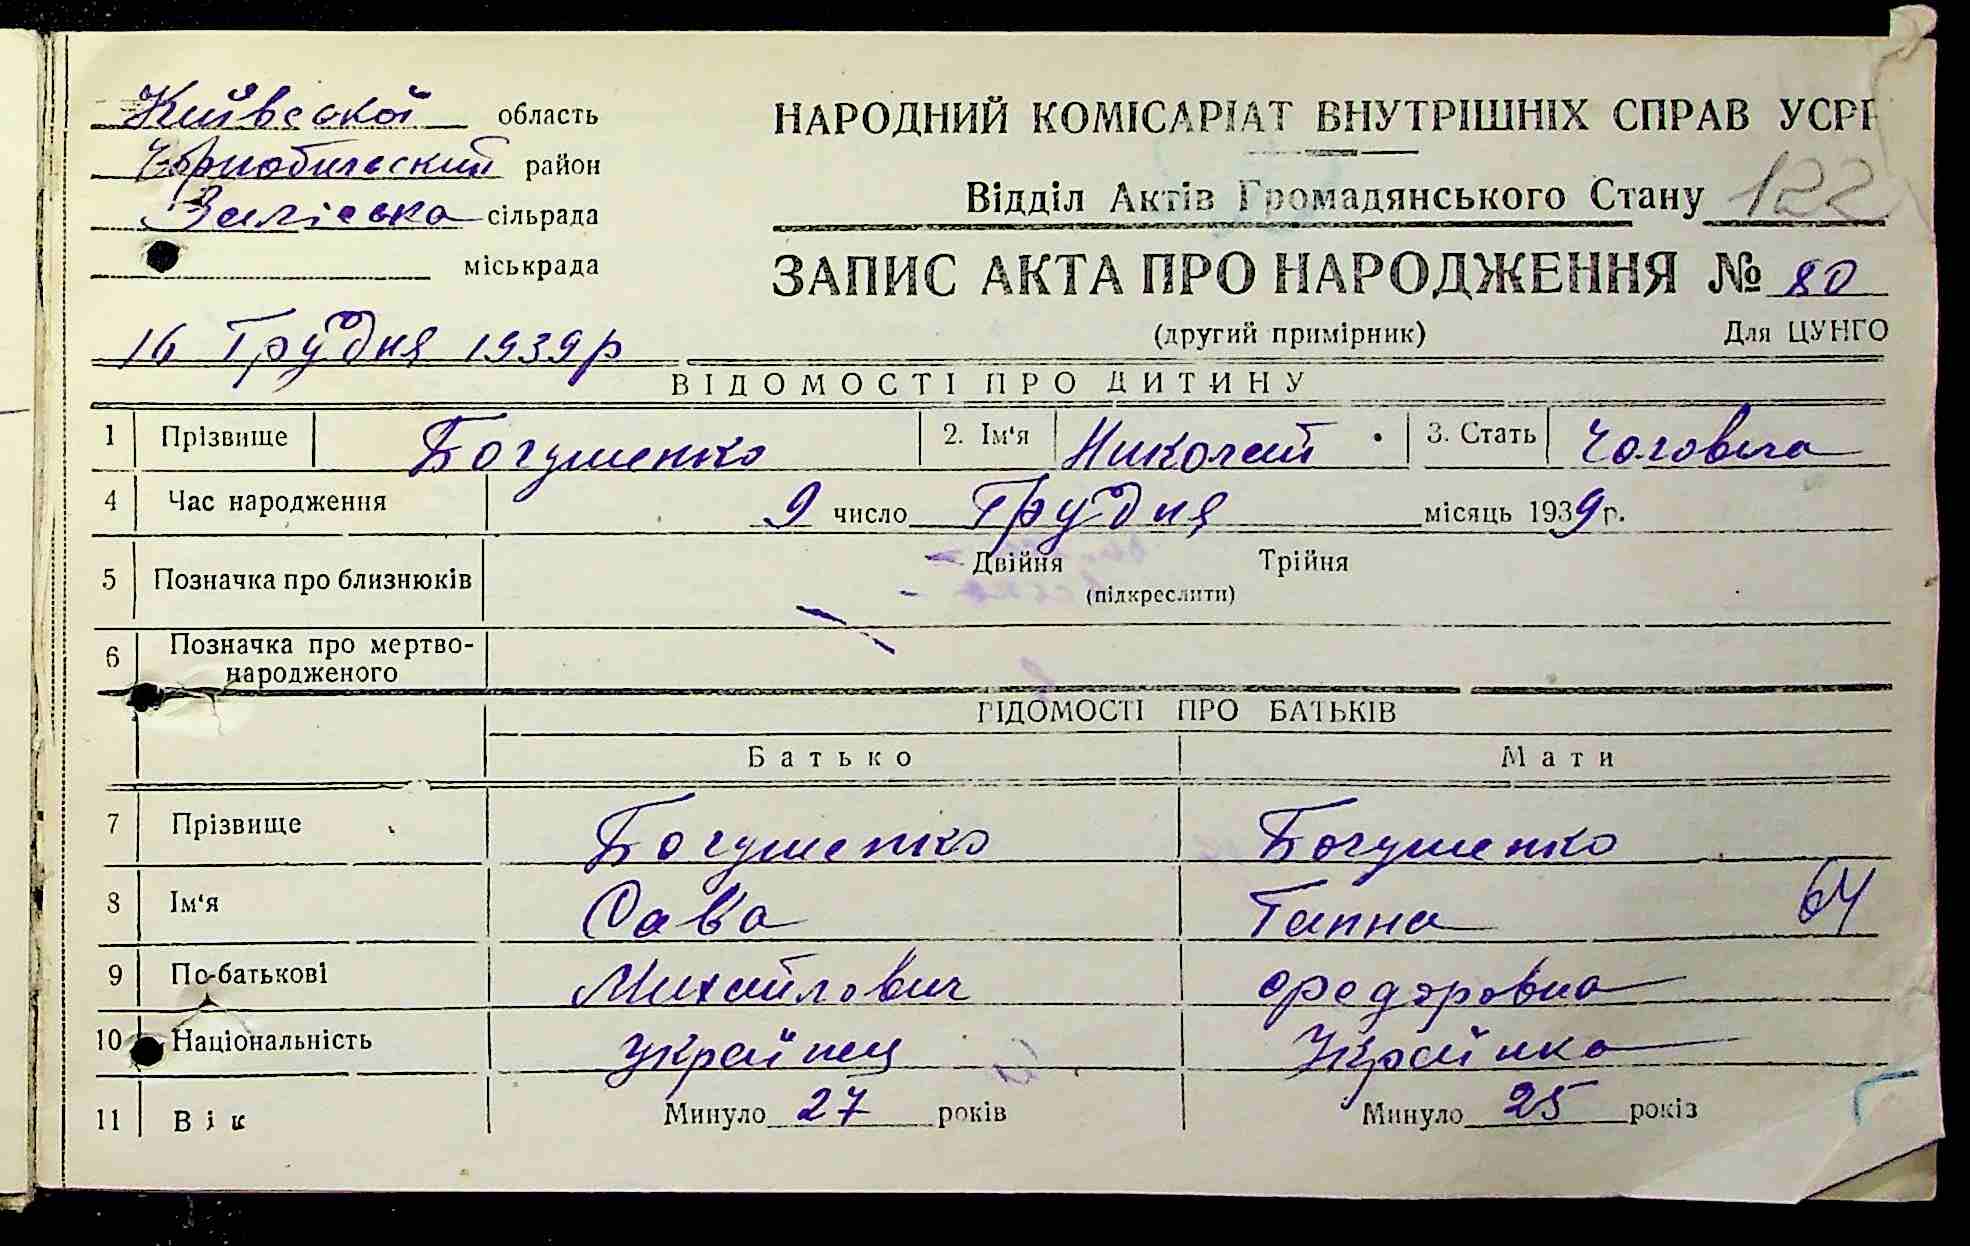 Київской область
Чернобильский район
Заліська сільрада
міськрада
НАРОДНИЙ КОМІСАРІАТ ВНУТРІШНІХ СПРАВ УСРР
Відділ Актів Громадянського Стану 122
ЗАПИС АКТА ПРО НАРОДЖЕННЯ № 80
16 Грудня 1939р
(другий примірник) Для ЦУНГО
ВІДОМОСТІ ПРО ДИТИНУ
1 Прізвище Богушенко 2. Ім'я Николай 3. Стать Чоловіча
4 Час народження 9 число Грудня місяць 1939 г.
5 Позначка про близнюків Двійня Трійня
(підкреслити)
6 Позначка про мертво-
народженого
ВІДОМОСТІ ПРО БАТЬКІВ
Батько Мати
7 Прізвище Богушенко Богушенко
8 Ім'я Сава Ганна 64
9 По-батькові Михайлович Федоровна
10 Національність Україпец Українка
11 Вік Минуло 27 років Минуло 25 років